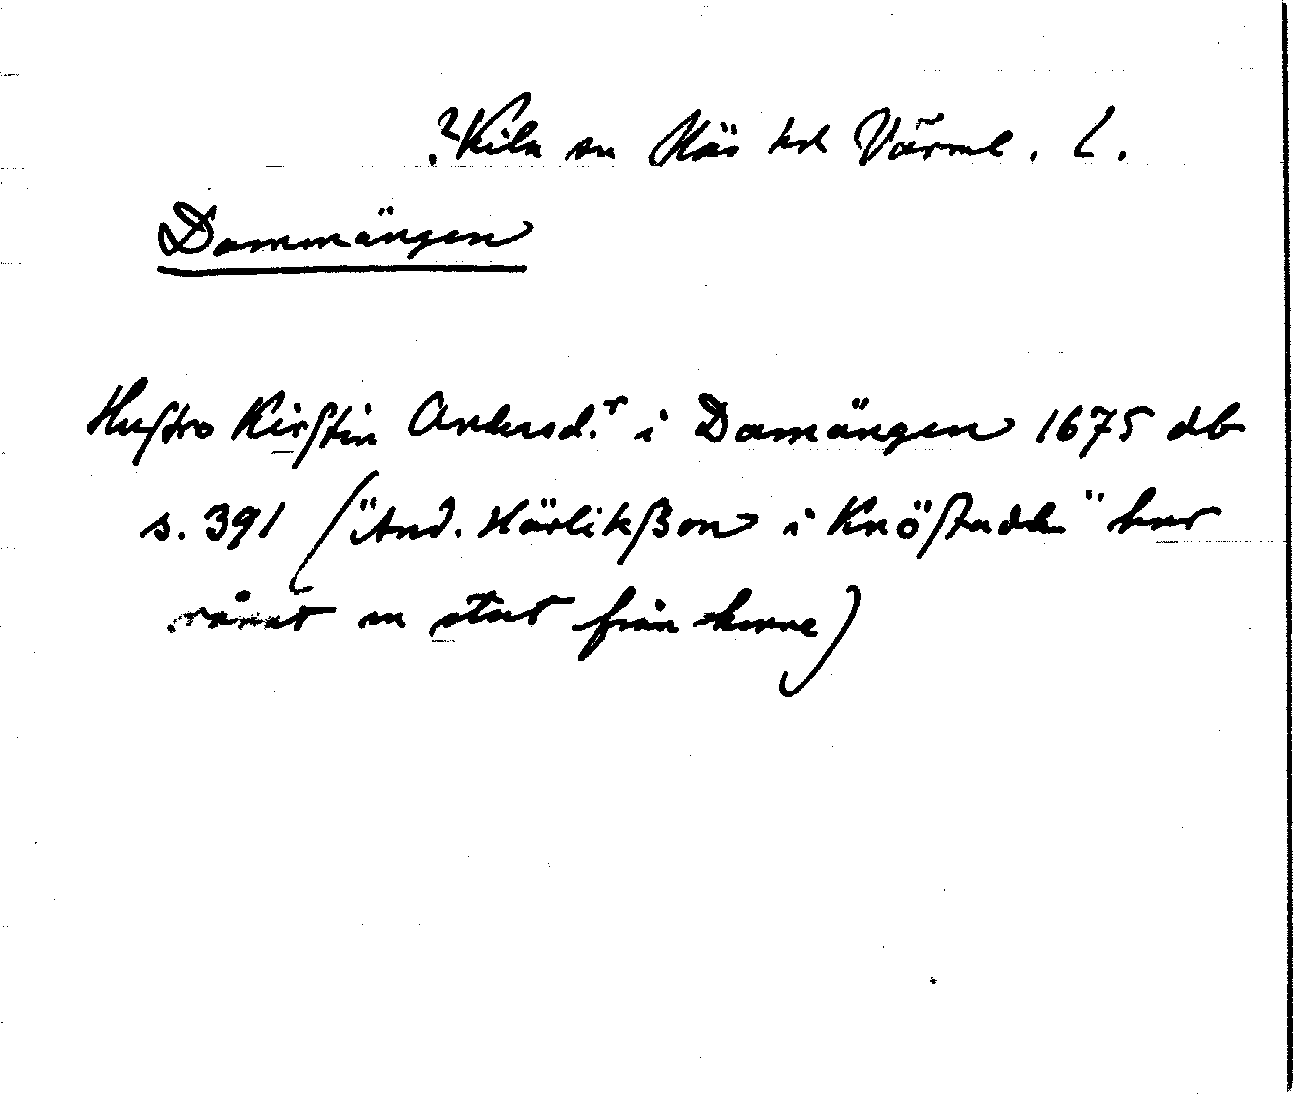 ? Kila sn Näs hd Värml. L.
Dammängen
Hustro Kirstin Andersd.r i Damängen 1675 db
s. 391 ("And. Härlikßon i Knöstadh" har
rånat en stut från henne)